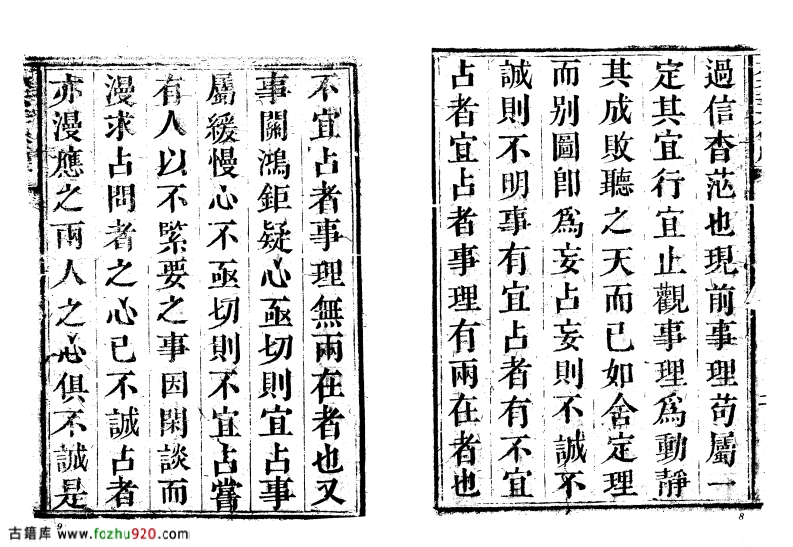 過信杳茫也現前事理苟屬一
定其宜行宜止觀事理為動靜
其成敗聽之天而已如舍定理
而别圖卽為妄占妄則不誠不
誠則不明事有宜占者有不宜
占者宜占者事理有兩在者也
8
不宜占者事理無兩在者也又
事關鴻鉅疑心亟切則宜占事
屬緩慢心不亟切則不宜占嘗
有人以不緊要之事因閑談而
漫求占問者之心已不誠占者
亦漫應之兩人之心俱不誠是
9
古籍库 www.fozhu920.com